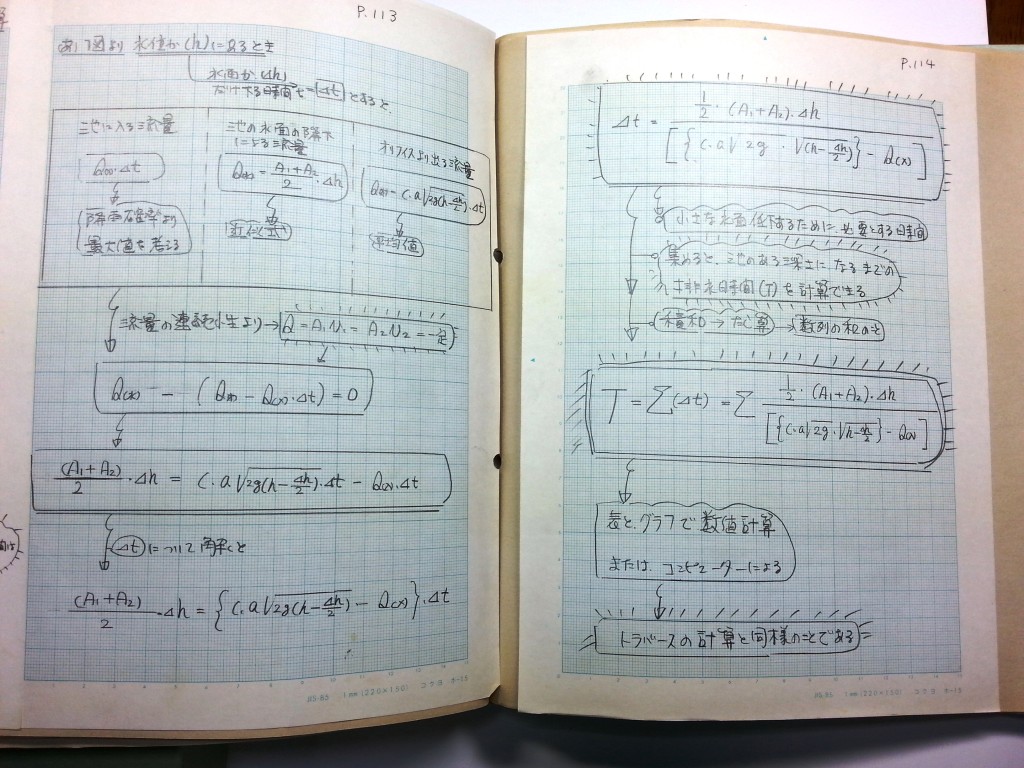 P.113
図より 水位が(h)になるとき
水面が(Δh)
だけ下る時間を=Δtとすると
池に入る流量
Q(x)・Δt
降雨確率より
最大値を考える
池の水面の降下
による流量
= A1+A2/2・Δh
近似式
オリフィスより出る流量
= C.a√2g(h-Δh/2)・Δt
平均値
流量の連続性より→Q=A1V1=A2V2=一定
- ( - Q(x)・Δt)=0
(A1+A2)/2・Δh = C.a√2g(h-Δh/2)・Δt - Q(x)・Δt
Δtについて解くと
(A1+A2)/2・Δh = {C.a√2g(h-Δh/2) - Q(x)}・Δt
RS-85 1mm(220×150) コクヨ ホ-15
P.114
Δt = 1/2・(A1+A2)・Δh/[{C.a√2g・√(h-Δh/2)} - Q(x)]
小さな水面低下するために、必要とする時間
集めると、池のある深さになるまでの
排水時間(T)を計算できる
積和→たし算→数列の和のこと
T=Σ(Δt) =Σ 1/2・(A1+A2)・Δh/[{C.a√2g・√h-Δh/2} - Q(x)]
表と、グラフで数値計算
または、コンピューターによる
トラバースの計算と同様のことである
RS-85 1mm(220×150) コクヨ ホ-15